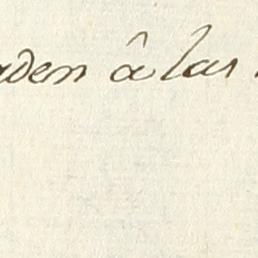 aden â las